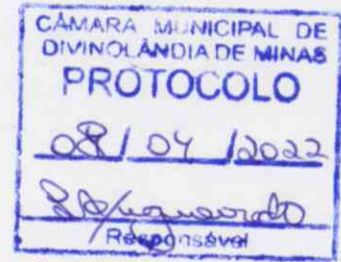 CÂMARA MUNICIPAL DE
DIVINOLÂNDIA DE MINAS
PROTOCOLO
08/ 04 /2022
Responsável